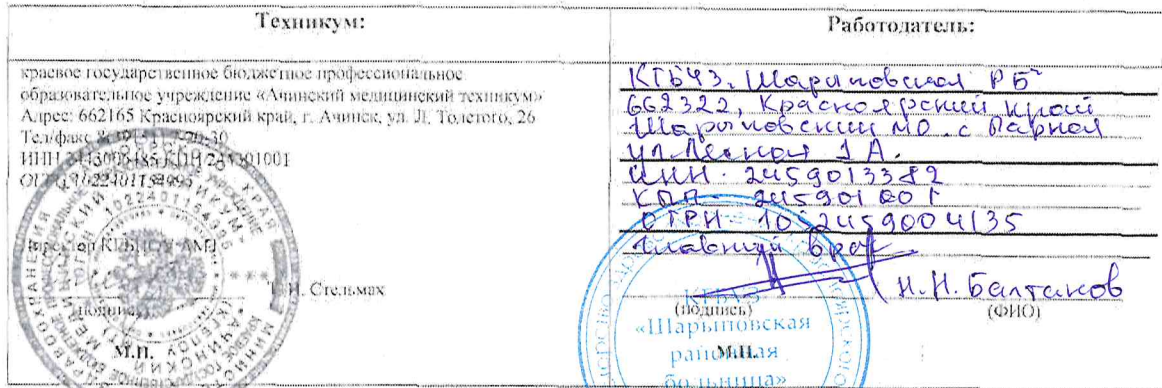 Техникум:
краевое государственное бюджетное профессиональное
образовательное учреждение «Ачинский медицинский техникум»
Адрес: 662165 Красноярский край, г. Ачинск, ул. Л. Толстого, 26
Тел/факс
ИНН 2443006485 КПП 244301001
Директор КГБПОУ АМТ
Стельмах
(подпись)
М.П.
Работодатель:
КГБУЗ, Шарыповская РБ
662322, Красноярский край
Шарыповский МО. с Парная
ул. Лесная 1 А.
ИНН. 2459013382
КПП 245901001
ОГРН 102459004135
Главный врач
Н.Н. Балтаков
(подпись)
(ФИО)
КГБУЗ
«Шарыповская
районная
больница»
М.П.